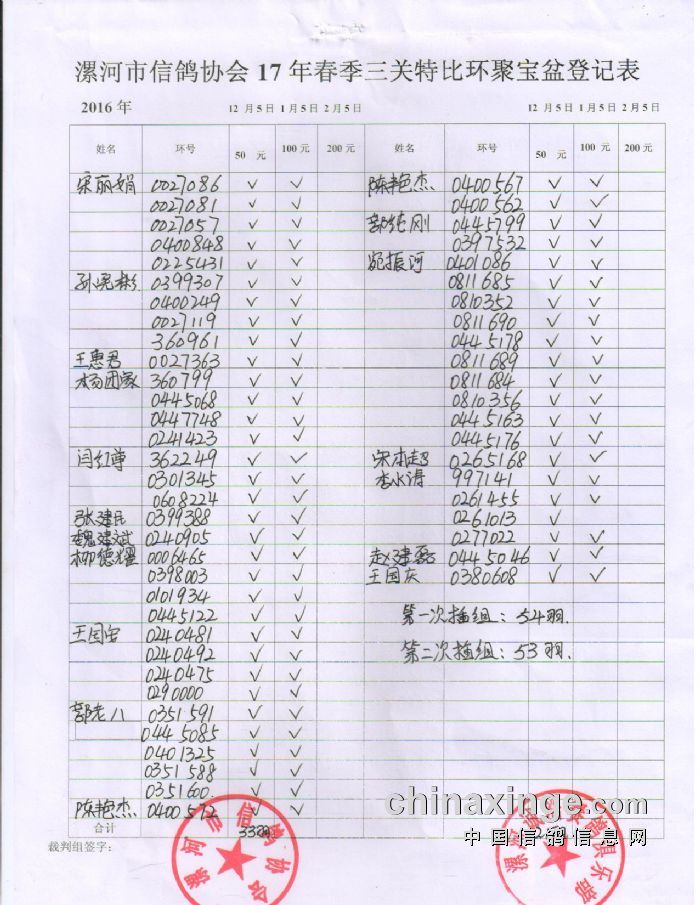 漯河市信鸽协会 17 年春季三关特比环聚宝盆登记表
2016 年 12 月5日 1月5日 2月5日 12 月5日 1月5日 2月5日
姓名 环号 50 元 100元 200 元 姓名 环号 50 元 100 元 200 元
宋丽娟 0027086 ✓ ✓ 陈艳杰 0400567 ✓ ✓
0027081 ✓ ✓ 0400562 ✓ ✓
0027057 ✓ ✓ 郭纯刚 0445799 ✓ ✓
0400848 ✓ ✓ 0397532 ✓ ✓
0225431 ✓ ✓ 宛振河 0401086 ✓ ✓
孙晓彬 0399307 ✓ ✓ 0811685 ✓ ✓
0400249 ✓ ✓ 0810352 ✓ ✓
0027119 ✓ ✓ 0811690 ✓ ✓
360961 ✓ ✓ 0445178 ✓ ✓
王惠君 0027363 ✓ ✓ 0811689 ✓ ✓
杨团家 360799 ✓ ✓ 0811684 ✓ ✓
0445068 ✓ ✓ 0810356 ✓ ✓
0447748 ✓ ✓ 0445163 ✓ ✓
0241423 ✓ ✓ 0445176 ✓ ✓
闫红尊 362249 ✓ ✓ 宋本超 0265168 ✓ ✓
0301345 ✓ ✓ 李水涛 997141 ✓ ✓
0608224 ✓ ✓ 0261455 ✓ ✓
张建民 0399388 ✓ ✓ 0261013 ✓
魏建斌 0240905 ✓ ✓ 0277022 ✓ ✓
柳德耀 0006465 ✓ ✓ 赵建磊 0445046 ✓ ✓
0398003 ✓ ✓ 王国庆 0380608 ✓ ✓
0101934 ✓ ✓
0445122 ✓ ✓ 第一次插组：54羽.
王国宙 0240481 ✓ ✓
0240492 ✓ ✓ 第二次插组：53羽.
0240475 ✓ ✓
0290000 ✓ ✓
郭老八 0351591 ✓ ✓
0445085 ✓ ✓
0401325 ✓ ✓
0351588 ✓ ✓
0351600 ✓ ✓
陈艳杰 0400572 ✓ ✓
合计 33羽
裁判组签字：
漯河市信鸽协会
chinaxinge.com
中国信鸽信息网